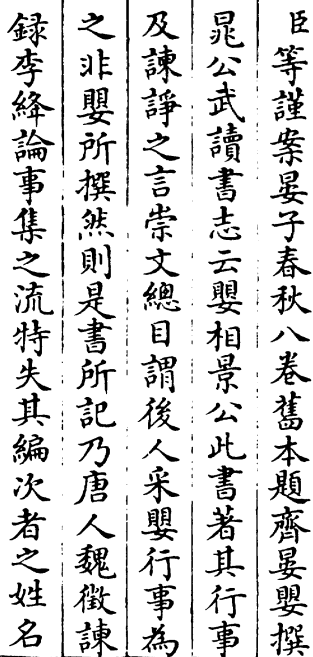 臣等謹案晏子春秋八卷舊本題齊晏嬰撰
晁公武讀書志云嬰相景公此書著其行事
及諫諍之言崇文總目謂後人采嬰行事為
之非嬰所撰然則是書所記乃唐人魏徵諫
録李絳論事集之流特失其編次者之姓名